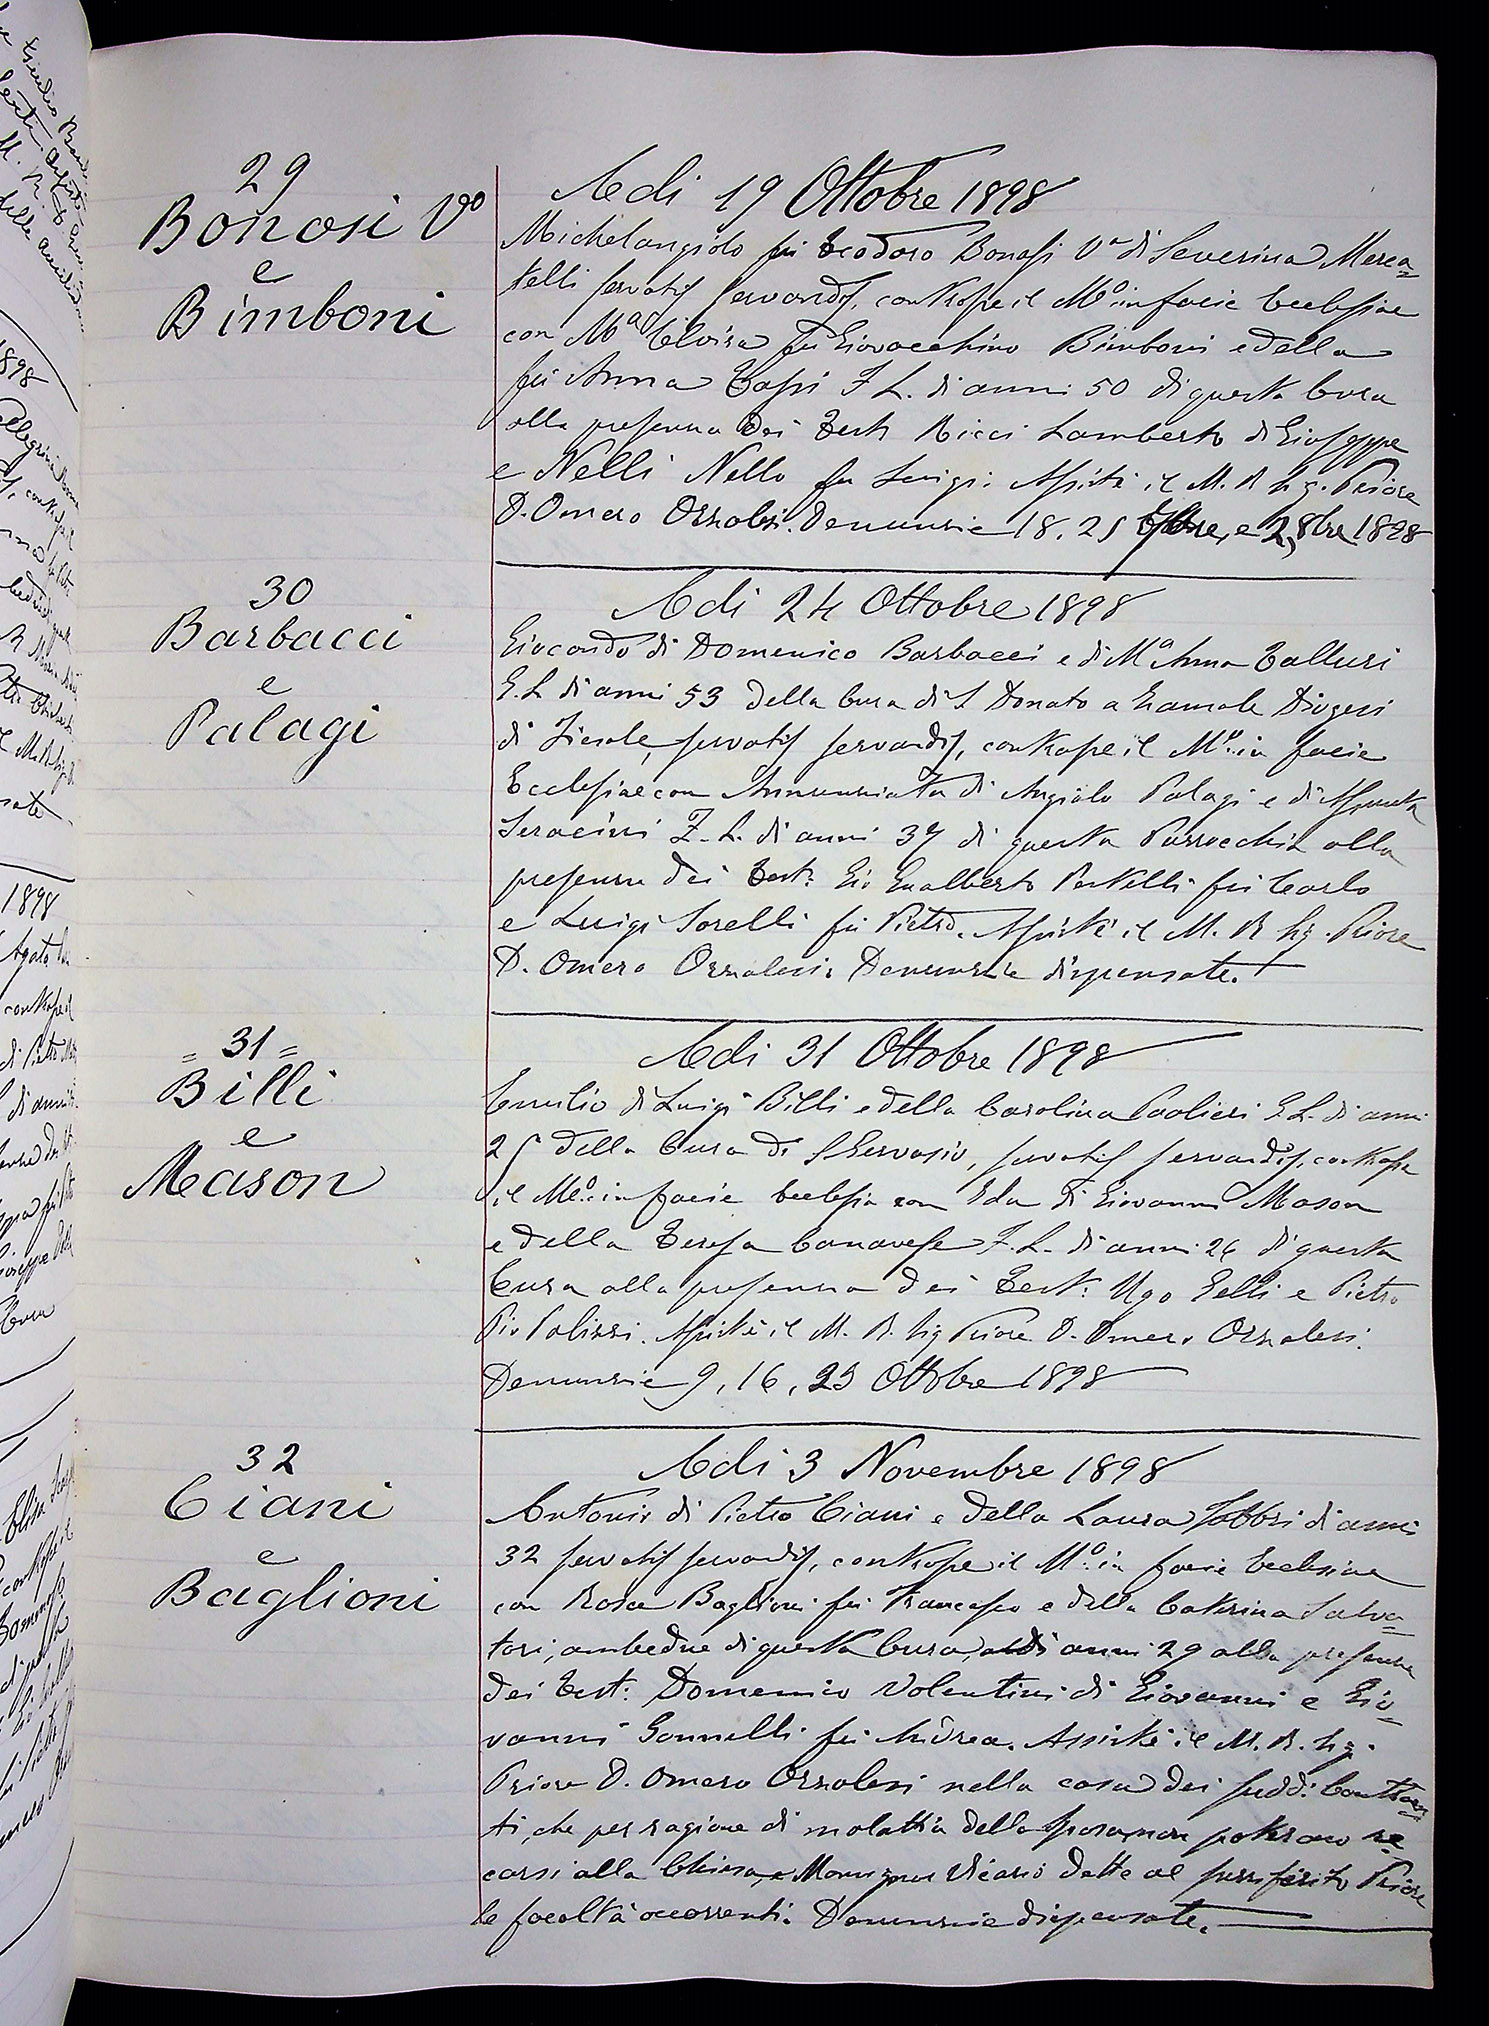 29
Bonosi Vo
e
Bimboni
Adi 19 Ottobre 1898
Michelangiolo fu Teodoro Bonosi Vo di Severina Merca=
telli servatis servandis, contrasse il Mo in facie Ecclesiae
con Ma Elvira fu Giovacchino Bimboni e della
fu Anna Tassi F L. di anni 50 di questa Cura
alla presenza dei Testi Ricci Lamberto di Giuseppe
e Nelli Nello fu Luigi. Assistè il M. R Sig. Priore
D. Omero Orzalesi. Denunzie 18, 25 e 2, 8bre 1898
30
Barbacci
e
Palagi
Adi 24 Ottobre 1898
Giocondo di Domenico Barbacci e di Ma Anna Talluri
G. L di anni 53 della Cura di S Donato a Diogesi
di Fiesole, servatis servandis, contrasse il Mo in facie
Ecclesiae con Annunziata di Angiolo Palagi e di Assunta
Seracini F. L. di anni 37 di questa Parrocchia alla
presenza dei Test: Gio Gualberto fu Carlo
e Luigi Sorelli fu Pietro. Assistè il M. R Sig. Priore
D. Omero Orzalesi. Denunzie dispensate.
= 31 =
Billi
e
Mason
Adi 31 Ottobre 1898
Emilio di Luigi Billi e della Carolina Paolieri G. L. di anni
25 della Cura di S Gervasio, servatis servandis, contrasse
il Mo in facie Ecclesia con Ida di Giovanni Mason
e della Teresa Canavese F. L. di anni 26 di questa
Cura alla presenza dei Test: Ugo Gelli e Pietro
Pio Palizzi. Assistè il M. R. Sig Priore D. Omero Orzalesi.
Denunzie 9, 16, 23 Ottobre 1898
32
Ciani
e
Baglioni
Adi 3 Novembre 1898
Antonio di Pietro Ciani e della Laura Fabbri di anni
32 servatis servandis, contrasse il Mo in facie Ecclesiae
con Rosa Baglioni fu Francesco e della Caterina Salva=
tori, ambedue di questa Cura, di anni 29 alla presenza
dei Test: Domenico Valentini di Giovanni e Gio=
vanni Gonnelli fu Andrea. Assistè il M. R. Sig.
Priore D. Omero Orzalesi nella casa dei sudd: Contraen=
ti, che per ragione di malattia della sposa, non poterono re=
carsi alla Chiesa, e Monsignor Vicario dette al Priore
le facoltà occorrenti. Denunzie dispensate.